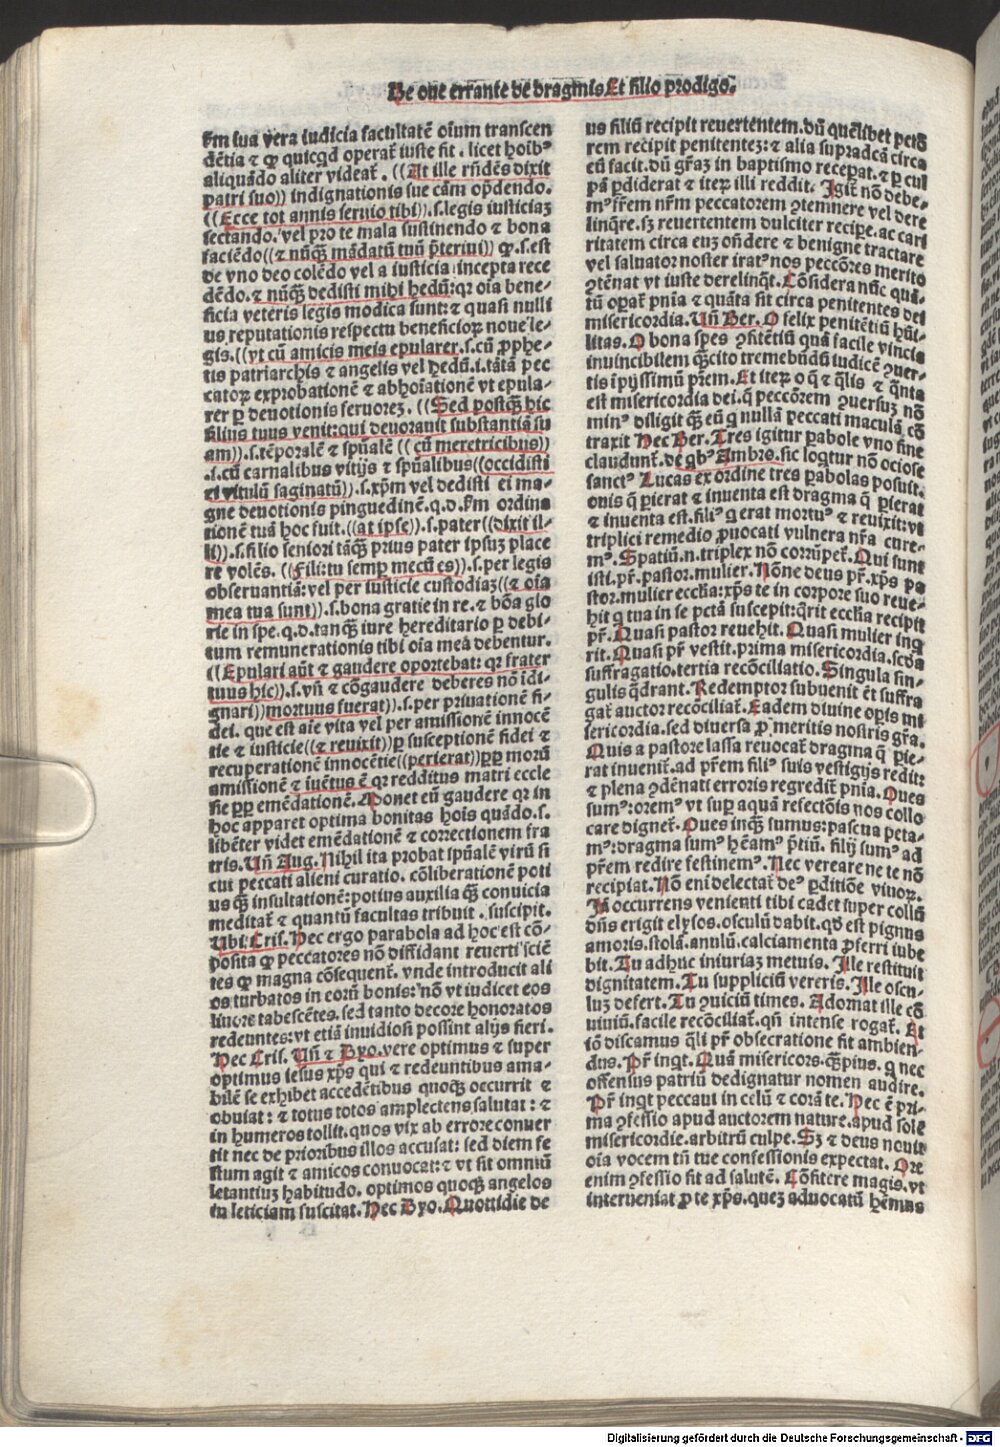 De oue errante de dragmis Et filio prodigo.
s̄m sua vera iudicia facultatē oīum transcen
dētia ⁊ ꝙ quicqd operat̄ iuste fit . licet hoībꝰ
aliquādo aliter videat̄ . ((At ille rn̄dēs dixit
patri suo)) indignationis sue cām oꝑdendo.
((Ecce tot annis seruio tibi)).s.legis iusticiaꝫ
sectando. vel pro te mala sustinendo ⁊ bona
faciēdo((⁊ nūꝙ̄ mādatū tuū p̄teriui)) ꝙ.s.est
de vno deo colēdo vel a iusticia incepta rece
dēdo. ⁊ nūꝙ̄ dedisti mihi hedū: qꝛ oīa bene-
ficia veteris legis modica sunt: ⁊ quasi nulli
us reputationis respectu beneficioꝝ noue le-
gis.((vt cū amicis meis epularer.s.cū ꝓphe-
tis patriarchis ⁊ angelis vel hedū.i.tātā pec
catoꝝ exprobationē ⁊ abhoīationē vt epula-
rer ꝑ deuotionis feruoreꝫ. ((Sed postꝙ̄ hic
filius tuus venit: qui deuorauit substantiā su
am)).s.tēporalē ⁊ spūalē ((cū meretricibus))
.i.cū carnalibus vitijs ⁊ spūalibus((occidisti
ei vitulū saginatū)).s.xp̄m vel dedisti ei ma-
gne deuotionis pinguedinē.q.d.s̄m ordina
tionē tuā hoc fuit.((at ipse)).s.pater((dixit il-
li)).s.filio seniori tāꝙ̄ prius pater ipsuꝫ place
re volēs. ((fili: tu semꝑ mecū es)).s.per legis
obseruantiā: vel per iusticie custodiaꝫ((⁊ oīa
mea tua sunt)).s.bona gratie in re.⁊ bōa glo
rie in spe.q.d.tanꝙ̄ iure hereditario ꝑ debi-
tum remunerationis tibi oīa mea debentur.
((Epulari aūt ⁊ gaudere oportebat: qꝛ frater
tuus hic)).s.vn̄ ⁊ cōgaudere deberes nō īdi-
gnari))mortuus fuerat)).s.per priuationē fi-
dei. que est aīe vita vel per amissionē innocē
tie ⁊ iusticie((⁊ reuixit))ꝑ susceptionē fidei ⁊
recuperationē innocētie((perierat))ꝓꝑ morū
amissionē ⁊ īuētus ē qꝛ redditus matri eccle
sie ꝓꝑ emēdationē. Monet eū gaudere qꝛ in
hoc apparet optima bonitas hoīs quādo.s.
libēter videt emēdationē ⁊ correctionem fra
tris. Vn̄ Aug. Nihil ita probat spūalē virū si
cut peccati alieni curatio. cōliberationē poti
us ꝙ̄ insultationē: potius auxilia ꝙ̄ conuicia
meditat̄ ⁊ quantū facultas tribuit . suscipit.
Ubi Cris. Nec ergo parabola ad hoc est cō-
posita ꝙ peccatores nō diffidant reuerti sciē
tes ꝙ magna cōsequent̄. vnde introducit ali
os turbatos in corū bonis: nō vt iudicet eos
liuore tabescētes. sed tanto decore honoratos
redeuntes: vt etiā inuidiosi possint alijs fieri.
Hec Cris. Vn̄ ⁊ Ggo. vere optimus ⁊ super
optimus iesus xp̄s qui ⁊ redeuntibus ama-
bilē se exhibet accedētibus quoꝙ̄ occurrit ⁊
obuiat: ⁊ totus totos amplectens salutat: ⁊
in humeros tollit. quos vix ab errore conuer
tit nec de prioribus illos accusat: sed diem fe
stum agit ⁊ amicos conuocat: ⁊ vt sit omniū
letantiuꝫ habitudo. optimos quoꝙ̄ angelos
in leticiam suscitat. Hec Gyo. Quottidie de
us filiū recipit reuertentem. dū quēlibet pctō
rem recipit penitenteꝫ: ⁊ alia supradcā circa
eū facit. dū gr̄aꝫ in baptismo receperat. ⁊ ꝑ cul
pā ꝑdiderat ⁊ iteꝝ illi reddit. Igit̄ nō debe-
mꝰ fr̄em nr̄m peccatorem ↄtemnere vel dere
linqre. sꝫ reuertentem dulciter recipe. ac cari
ritatem circa euꝫ on̄dere ⁊ benigne tractare
vel saluator noster iratꝰ nos peccōres merito
ↄtēnat vt iuste derelinqt̄. Cōsidera nūc quā-
tū operat̄ pn̄ia ⁊ quāta sit circa penitentes dei
misericordia. Vn̄ Ber. O felix penitētiū hūi-
litas. O bona spes ↄfitētiū quā facile vincis
inuincibilem ꝙ̄cito tremebūdū iudicē ↄuer-
tis ī pijssimū prēm. Et iteꝝ o q̄ ⁊ q̄lis ⁊ q̄nta
est misericordia dei. q̄ peccōrem ↄuersuꝫ nō
minꝰ diligit ꝙ̄ eū q nullā peccati maculā cō
traxit Hec Ber. Tres igitur ꝑabole vno fine
claudunt̄. de qbꝰ Ambro. sic loqtur nō ociose
sanctꝰ Lucas ex ordine tres ꝑabolas posuit.
onis q̄ ꝑierat ⁊ inuenta est dragma q̄ ꝑierat
⁊ inuenta est. filiꝰ q erat mortuꝰ ⁊ reuixit: vt
triplici remedio ꝓuocati vulnera nr̄a cure-
mꝰ. Spatiū.n.triplex nō corrūpet̄. Qui sunt
isti. pr̄. pastor. mulier. Nōne deus pr̄. xp̄s pa
stor. mulier eccl̄ia: xp̄s te in corpore suo reue-
hit q tua in se pctā suscepit: q̄rit eccl̄ia recipit
pr̄. Quasi pastor reuehit. Quasi mulier inq
rit. Quasi pr̄ vestit. prima misericordia. scd̄a
suffragatio. tertia recōciliatio. Singula sin-
gulis q̄drant. Redemptor subuenit ēt suffra
gat̄ auctor recōciliat̄. Eadem diuine oꝑis mi
sericordia. sed diuersa ꝓ meritis nostris gr̄a.
Quis a pastore lassa reuocat̄ dragma q̄ pie-
rat inuenit̄. ad pr̄em filiꝰ suis vestigijs redit:
⁊ plena ↄdēnati erroris regredit̄ pn̄ia. Oues
sumꝰ: oremꝰ vt sup aquā refectōis nos collo
care dignet̄. Oues inꝙ̄ sumus: pascua peta-
mꝰ: dragma sumꝰ hēamꝰ p̄tiū. filij sumꝰ ad
pr̄em redire festinemꝰ. Nec vereare ne te nō
recipiat. Nō enī delectat̄ deꝰ ꝑditiōe viuoꝝ.
Iā occurrens venienti tibi cadet super collū
dn̄s erigit elysos. osculū dabit. qd̄ est pignus
amoris. stolā. annulū. calciamenta ꝓferri iube
bit. Tu adhuc iniuriaꝫ metuis. Ille restituit
dignitatem. Tu suppliciū vereris. Ille oscu-
luꝫ defert. Tu ↄuiciū times. Adornat ille cō
uiuiū. facile recōciliat̄. qn̄ intense rogat̄. At
iō discamus q̄li pr̄ obsecratione sit ambien-
dus. Pr̄ inqt. Quā misericors. ꝙ̄ pius. q nec
offensus patriū dedignatur nomen audire.
Pr̄ inqt peccaui in celū ⁊ corā te. Hec ē pri-
ma ↄfessio apud auctorem nature. apud solē
misericordie. arbitrū culpe. Sꝫ ⁊ deus nouit
oīa vocem tn̄ tue confessionis expectat. Ore
enim ↄfessio fit ad salutē. Cōfitere magis. vt
interueniat ꝓ te xp̄s. queꝫ aduocatū hēmus